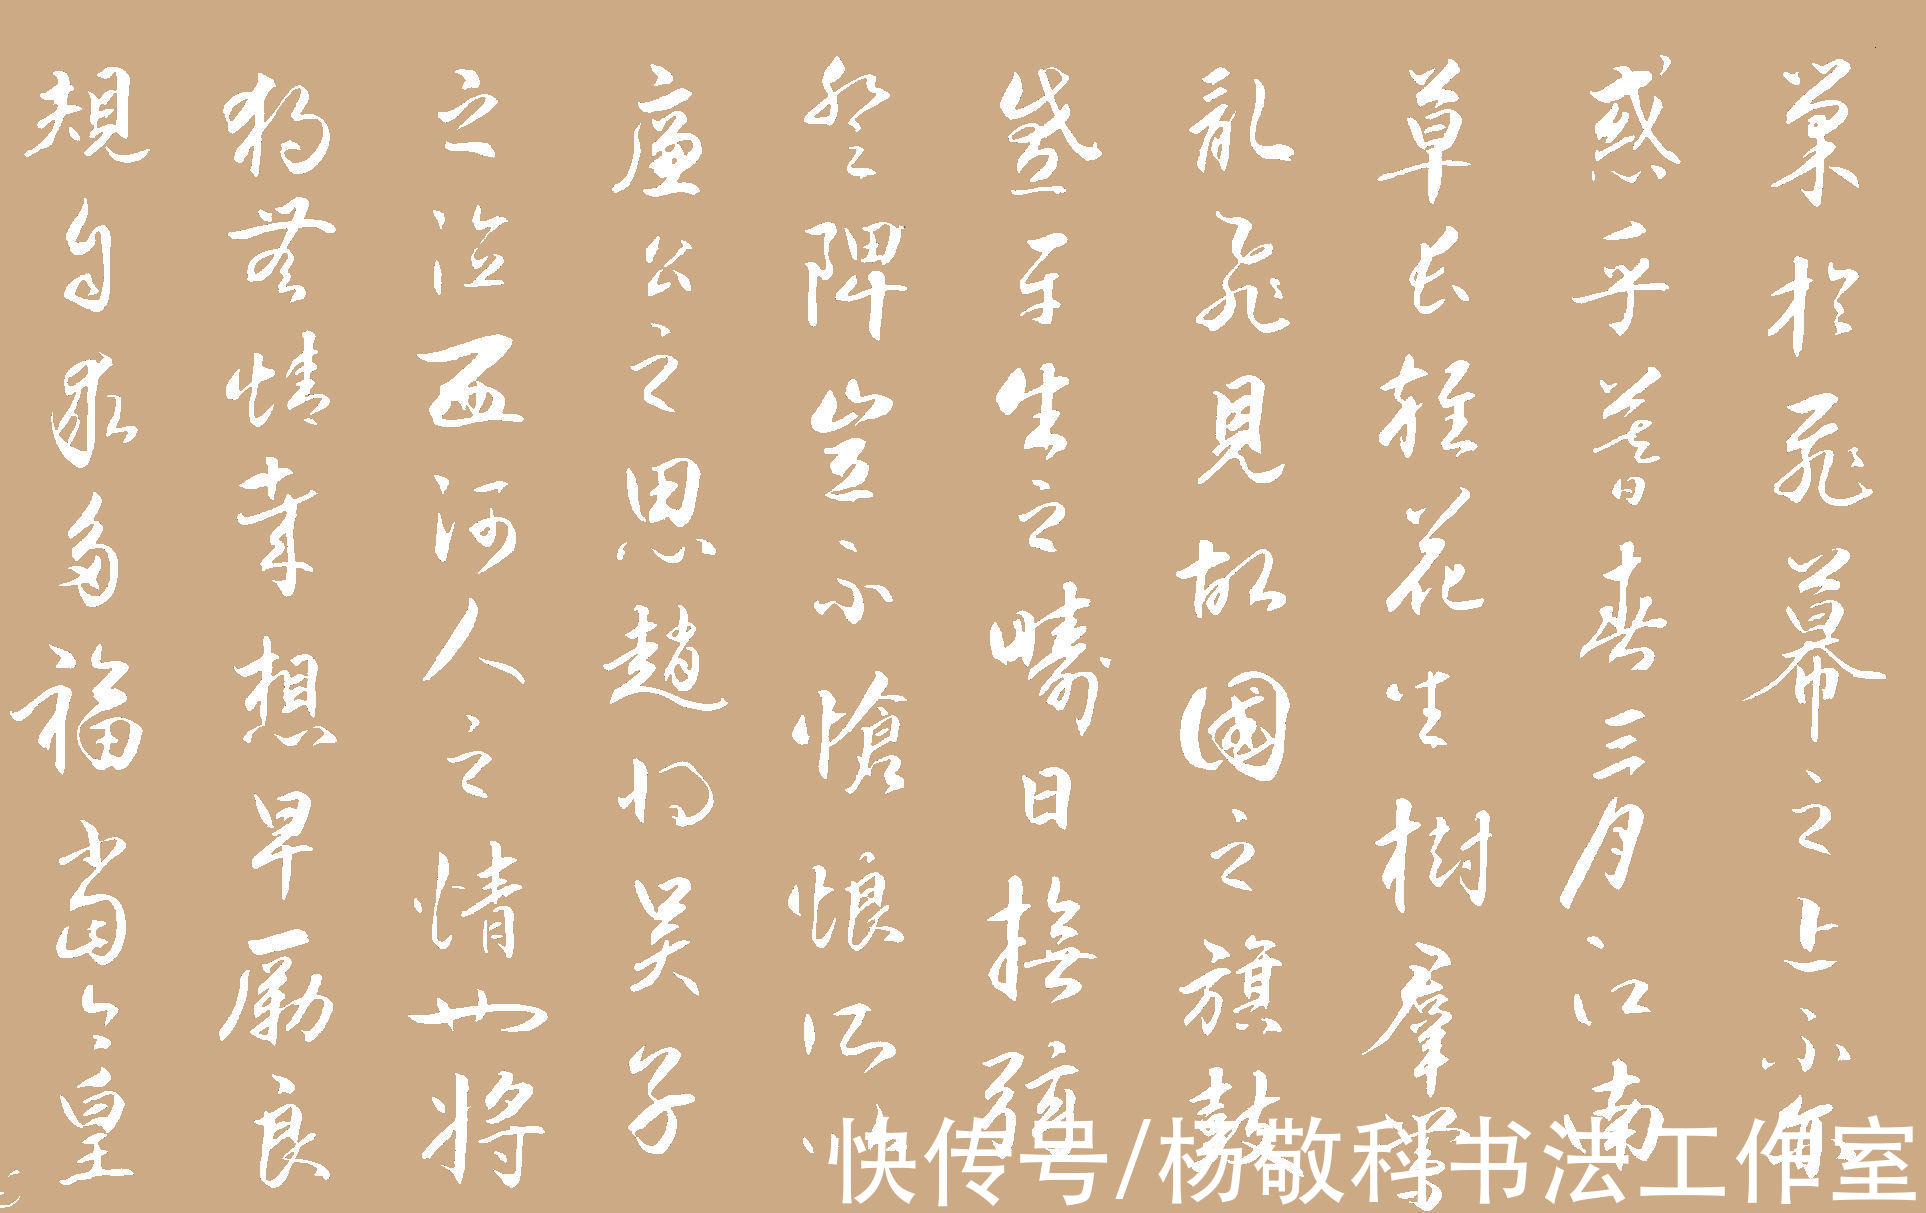 巢於飛幕之上不亦
惑乎暮春三月江南
草長雜花生樹羣鶯
亂飛見故國之旗鼓
感平生之疇日撫弦
登陴豈不愴悢所以
廉公之思趙將吳子
之泣西河人之情也將
軍獨無情哉想早勵良
規自求多福當今皇
快传号/杨敬科书法工作室